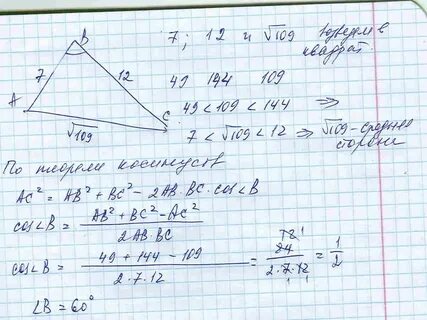 B
7 12
A C
√109
7; 12 и √109 Возведем в квадрат
49 144 109
49 < 109 < 144 ⇒
7 < √109 < 12 ⇒ √109 - средняя сторона
По теореме косинусов
AC² = AB² + BC² - 2AB·BC·cos∠B
cos∠B = (AB² + BC² - AC²) / (2AB·BC)
cos∠B = (49 + 144 - 109) / (2·7·12) = 84 / (2·7·12) = 1/2
∠B = 60°